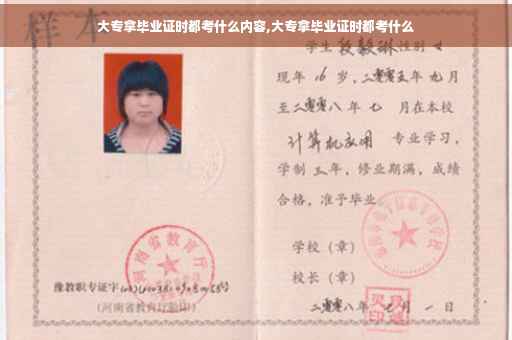 大专拿毕业证时都考什么内容,大专拿毕业证时都考什么
样本
学生段毅琳性别女
现年16岁，二零零五年九月
至二零零八年七月在本校
计算机应用 专业学习，
学制三年，修业期满，成绩
合格，准予毕业。
学校（章）
校长（章）
二零零八年七月一日
河南省教育厅
豫教职专证字
(河南省教育厅验印)